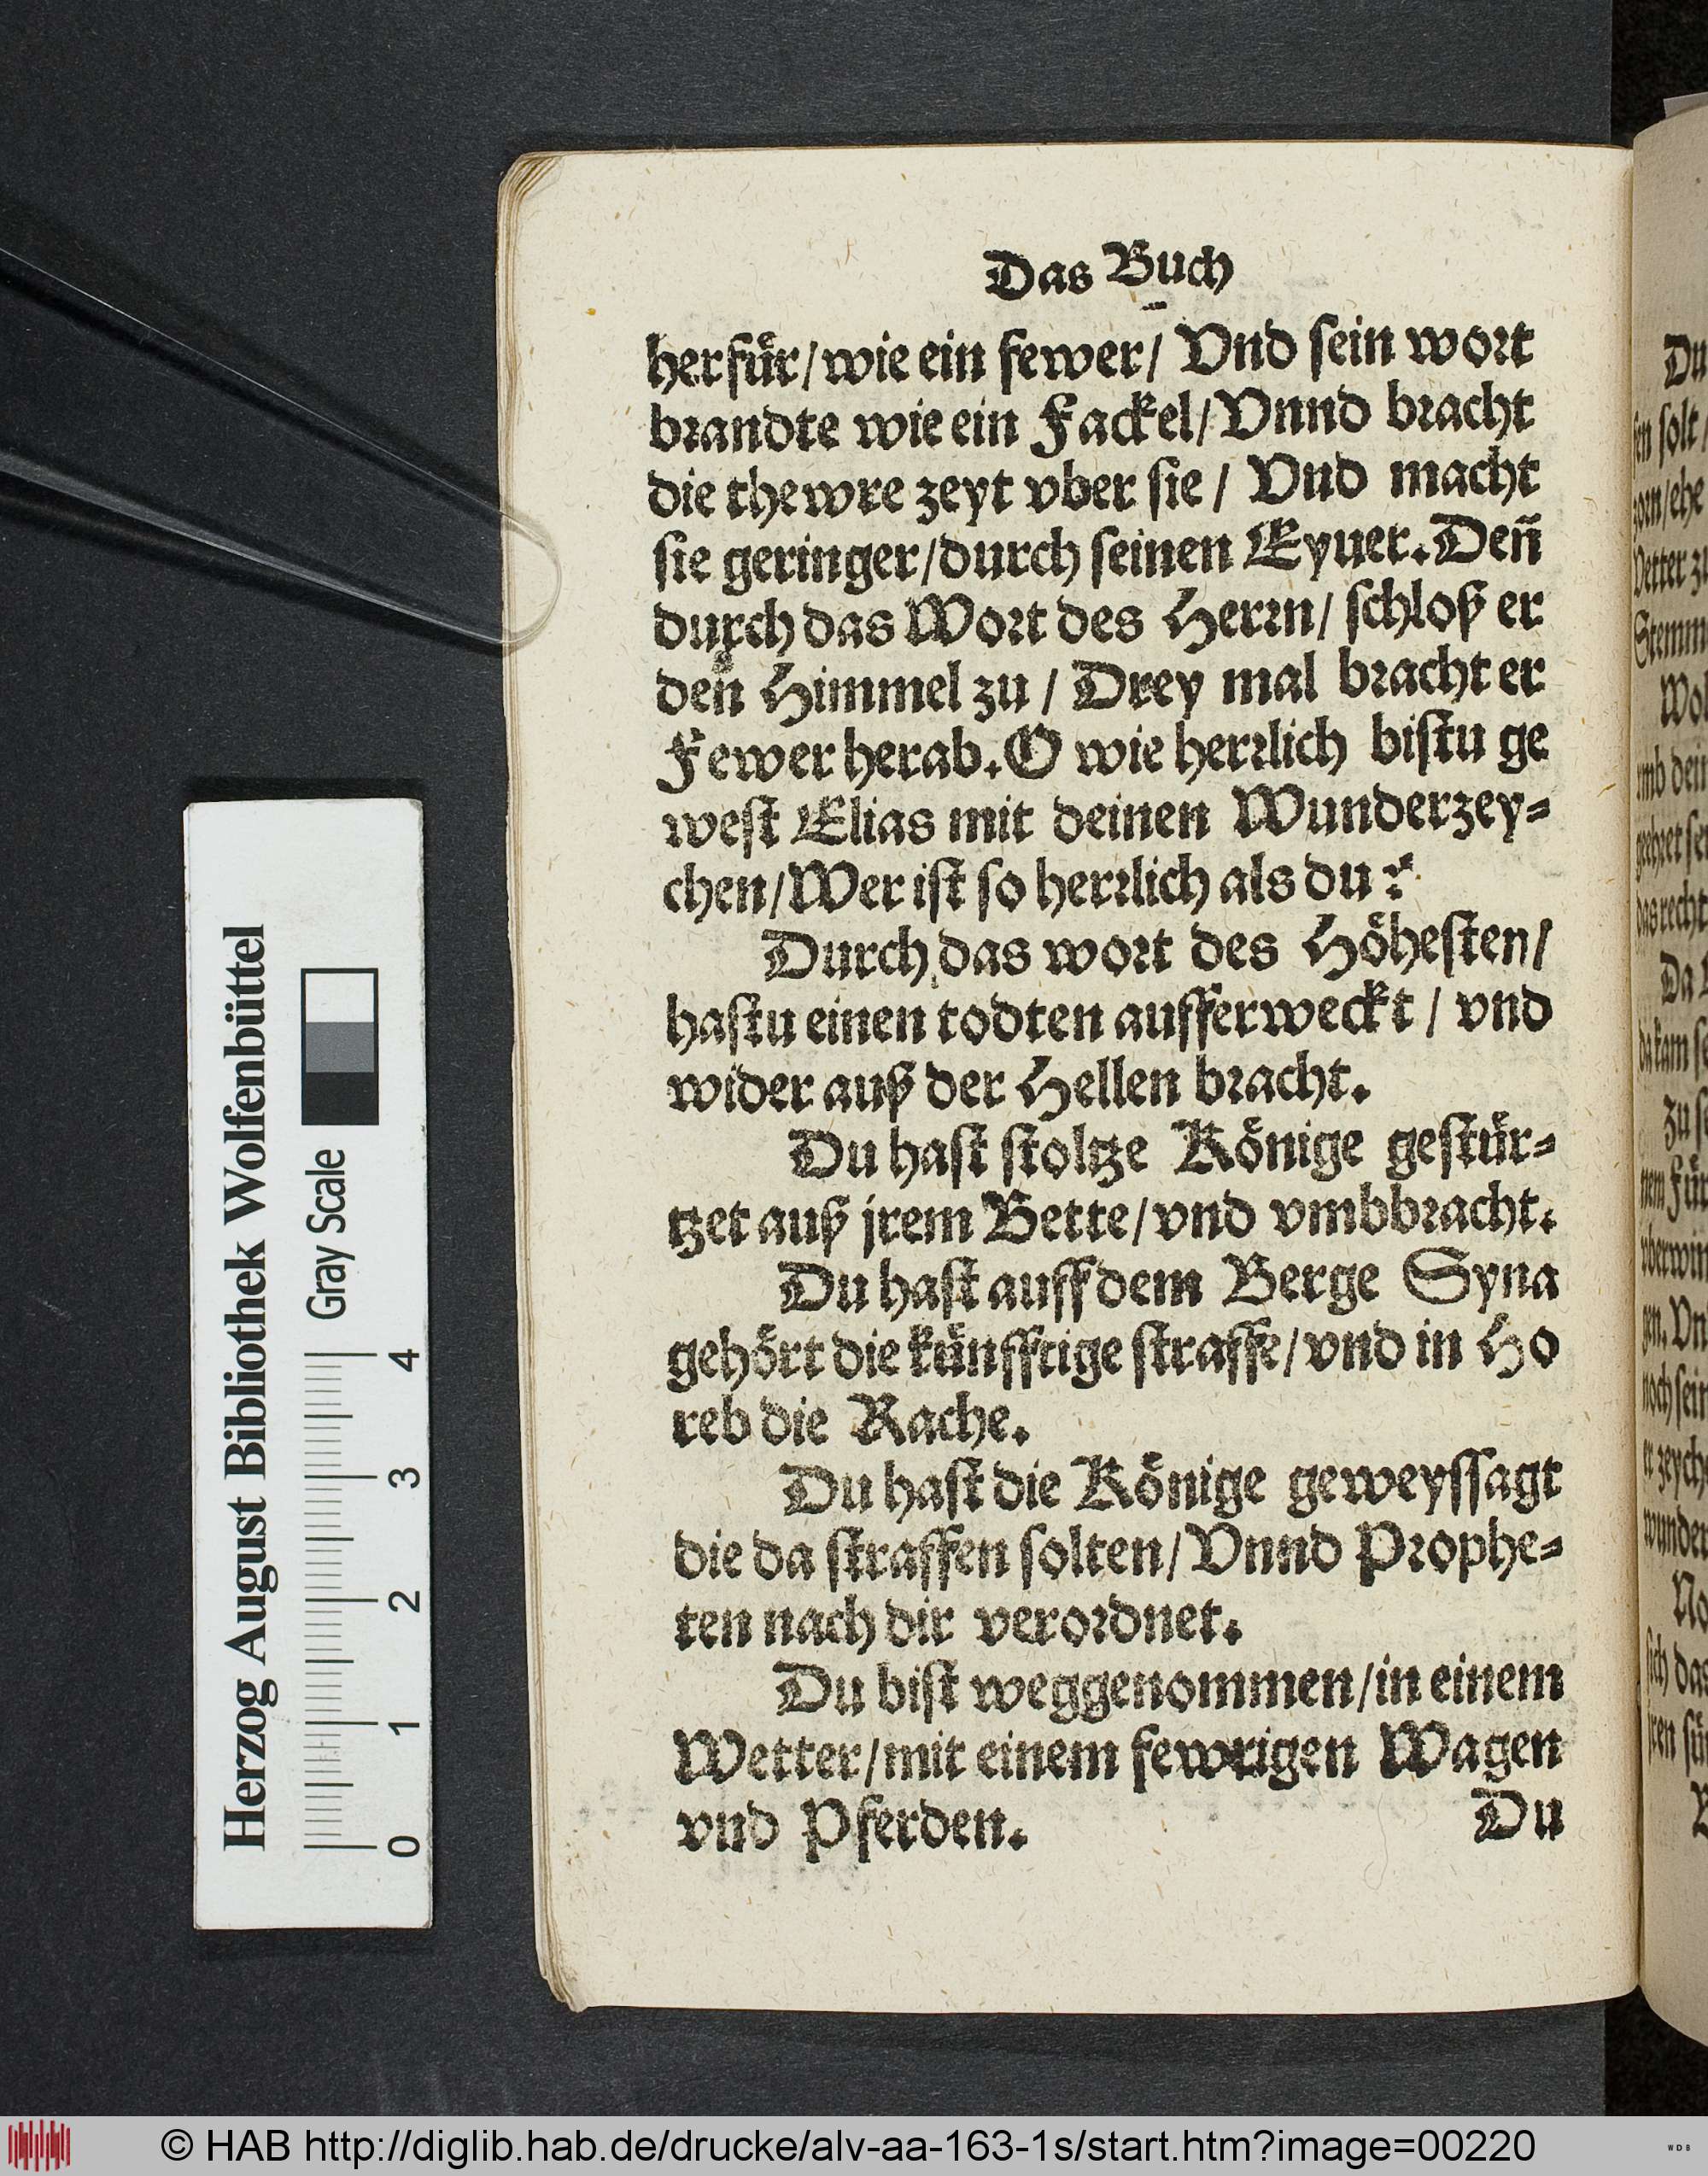 Das Buch
herfuͤr/wie ein fewer/ Vnd ſein wort
brandte wie ein Fackel/Vnnd bracht
die thewre zeyt vber ſie / Vnd macht
ſie geringer/durch ſeinen Eyuer. Deñ
durch das Wort des Herrn/ ſchloß er
den Himmel zu / Drey mal bracht er
Fewer herab. O wie herrlich biſtu ge
weſt Elias mit deinen Wunderzey⸗
chen/Wer iſt ſo herrlich als du?
Durch das wort des Hoͤheſten/
haſtu einen todten aufferweckt / vnd
wider auß der Hellen bracht.
Du haſt ſtoltze Koͤnige geſtuͤr⸗
tzet auß jrem Bette/vnd vmbbracht.
Du haſt auff dem Berge Syna
gehoͤrt die kuͤnfftige ſtraffe/vnd in Ho
reb die Rache.
Du haſt die Koͤnige geweyſſagt
die da ſtraffen ſolten/Vnnd Prophe⸗
ten nach dir verordnet.
Du biſt weggenommen/in einem
Wetter/mit einem fewrigen Wagen
vnd Pferden. Du
Herzog August Bibliothek Wolfenbüttel
Gray Scale
0 1 2 3 4
Du
ſolt/
zorn/ehe
Vetter
das recht
Da
da kam
Zu
© HAB http://diglib.hab.de/drucke/alv-aa-163-1s/start.htm?image=00220
WDB